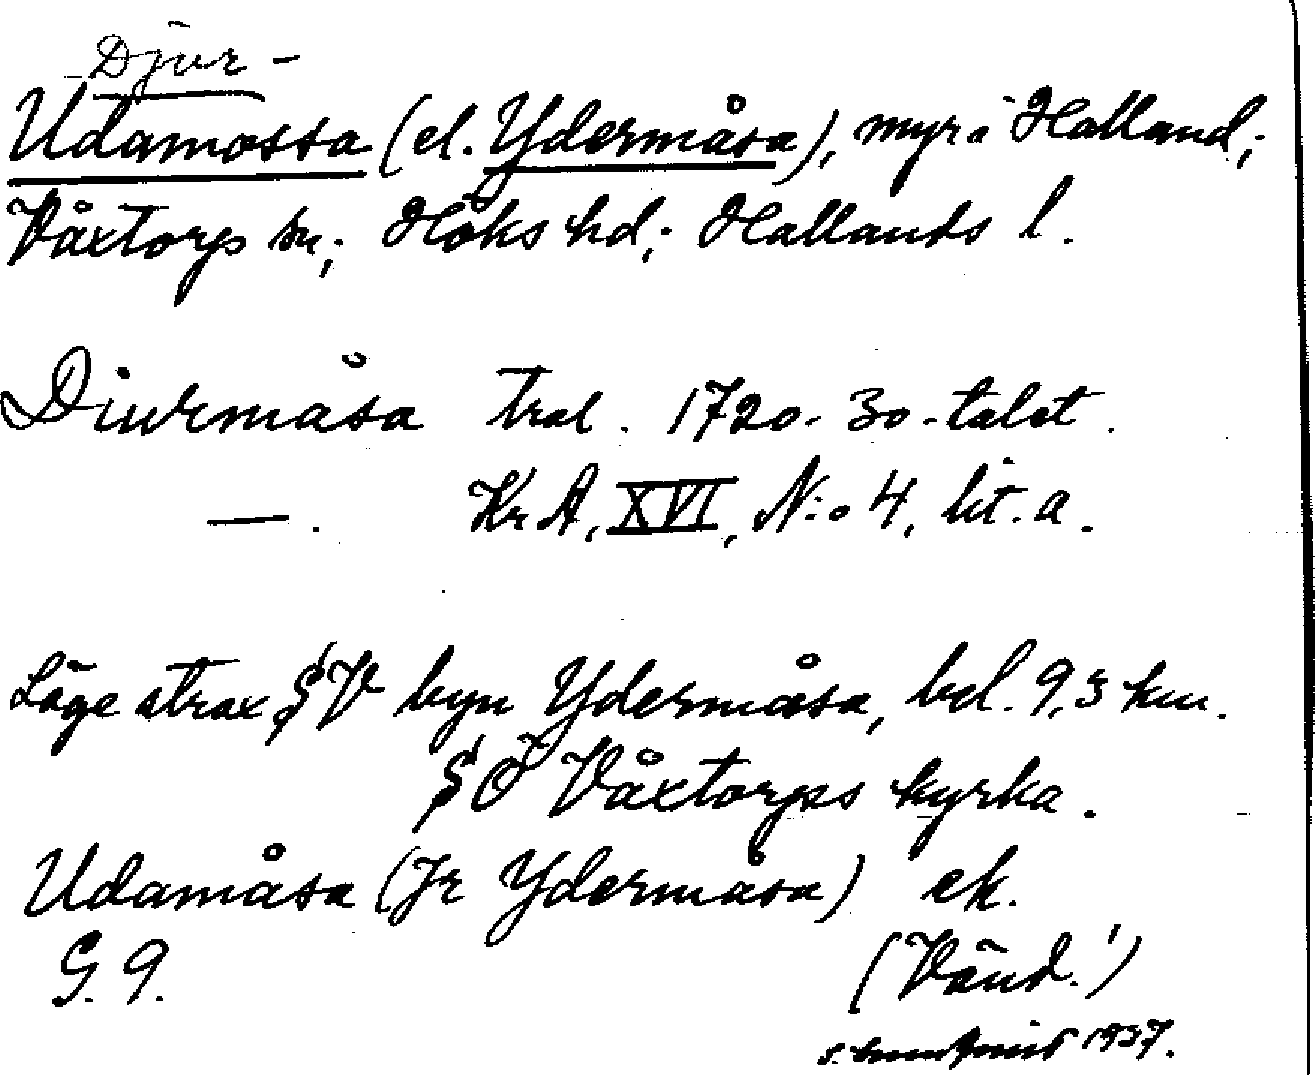 Djur-
Udamossa (el. Ydermåsa), myr i Halland;
Våxtorps sn; Höks hd; Hallands l.
Diurmåsa tral. 1720-30-talet.
—. KrA, XVI, N:o 4, lit. a.
Läge strax SV byn Ydermåsa, bel. 9,3 km.
SÖ Våxtorps kyrka.
Udamåsa (Jr Ydermåsa) ek.
G. 9. (Vänd!)
1937.